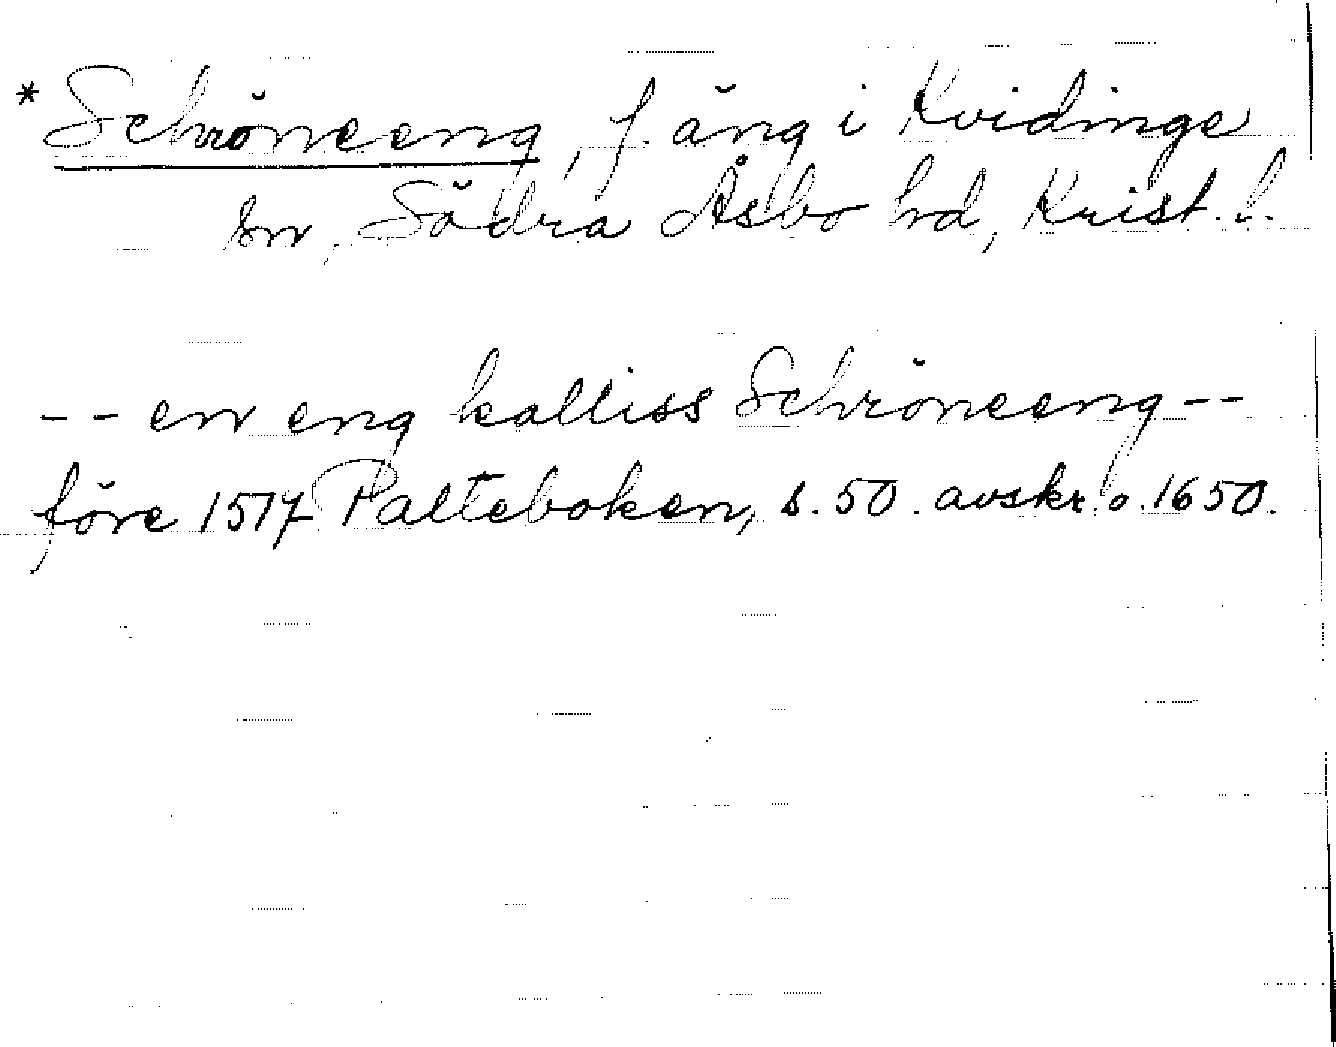 * Schröneeng, f. äng i Kvidinge
sn, Södra Åsbo hd, Krist. l.
-- en eng kalliss Schröneeng --
före 1517 Palteboken, s. 50. avskr. o. 1650.